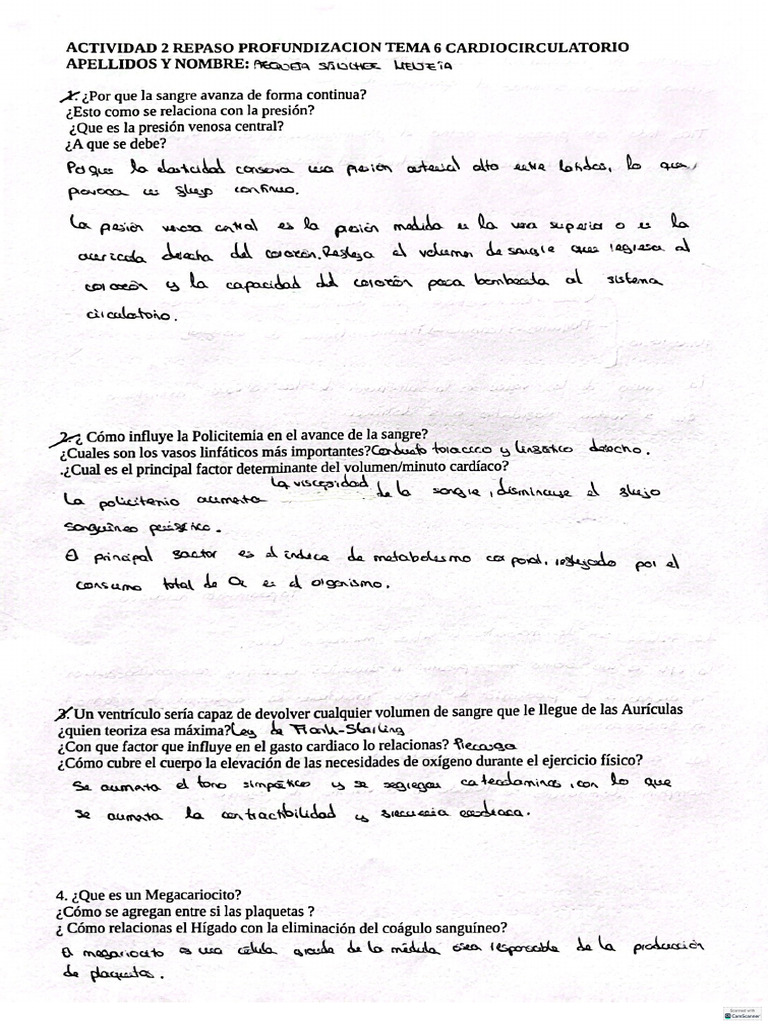 ACTIVIDAD 2 REPASO PROFUNDIZACION TEMA 6 CARDIOCIRCULATORIO
APELLIDOS Y NOMBRE: SÁNCHEZ
1. ¿Por que la sangre avanza de forma continua?
¿Esto como se relaciona con la presión?
¿Que es la presión venosa central?
¿A que se debe?
Porque la elasticidad conserva una presión arterial alta entre latidos, lo que
provoca un flujo continuo.
La presión venosa central es la presión medida en la vena superior o en la
auricula derecha del corazón. Refleja el volumen de sangre que regresa al
corazón y la capacidad del corazón para bombearla al sistema
circulatorio.
2. ¿ Cómo influye la Policitemia en el avance de la sangre?
¿Cuales son los vasos linfáticos más importantes? Conducto toracico y linfático derecho.
.¿Cual es el principal factor determinante del volumen/minuto cardíaco?
La policitemia aumenta la viscosidad de la sangre, disminuye el flujo
sanguíneo periférico.
El principal factor es el índice de metabolismo corporal, reflejado por el
consumo total de O2 en el organismo.
3. Un ventrículo sería capaz de devolver cualquier volumen de sangre que le llegue de las Aurículas
¿quien teoriza esa máxima? Ley de Frank-Starling
¿Con que factor que influye en el gasto cardiaco lo relacionas? Precarga
¿Cómo cubre el cuerpo la elevación de las necesidades de oxígeno durante el ejercicio físico?
Se aumenta el tono simpático y se segregan catecolaminas, con lo que
se aumenta la contractibilidad y frecuencia cardiaca.
4. ¿Que es un Megacariocito?
¿Cómo se agregan entre si las plaquetas ?
¿ Cómo relacionas el Hígado con la eliminación del coágulo sanguíneo?
El megariocito es una célula grande de la médula ósea responsable de la producción
de plaquetas.
Scanned with
CamScanner